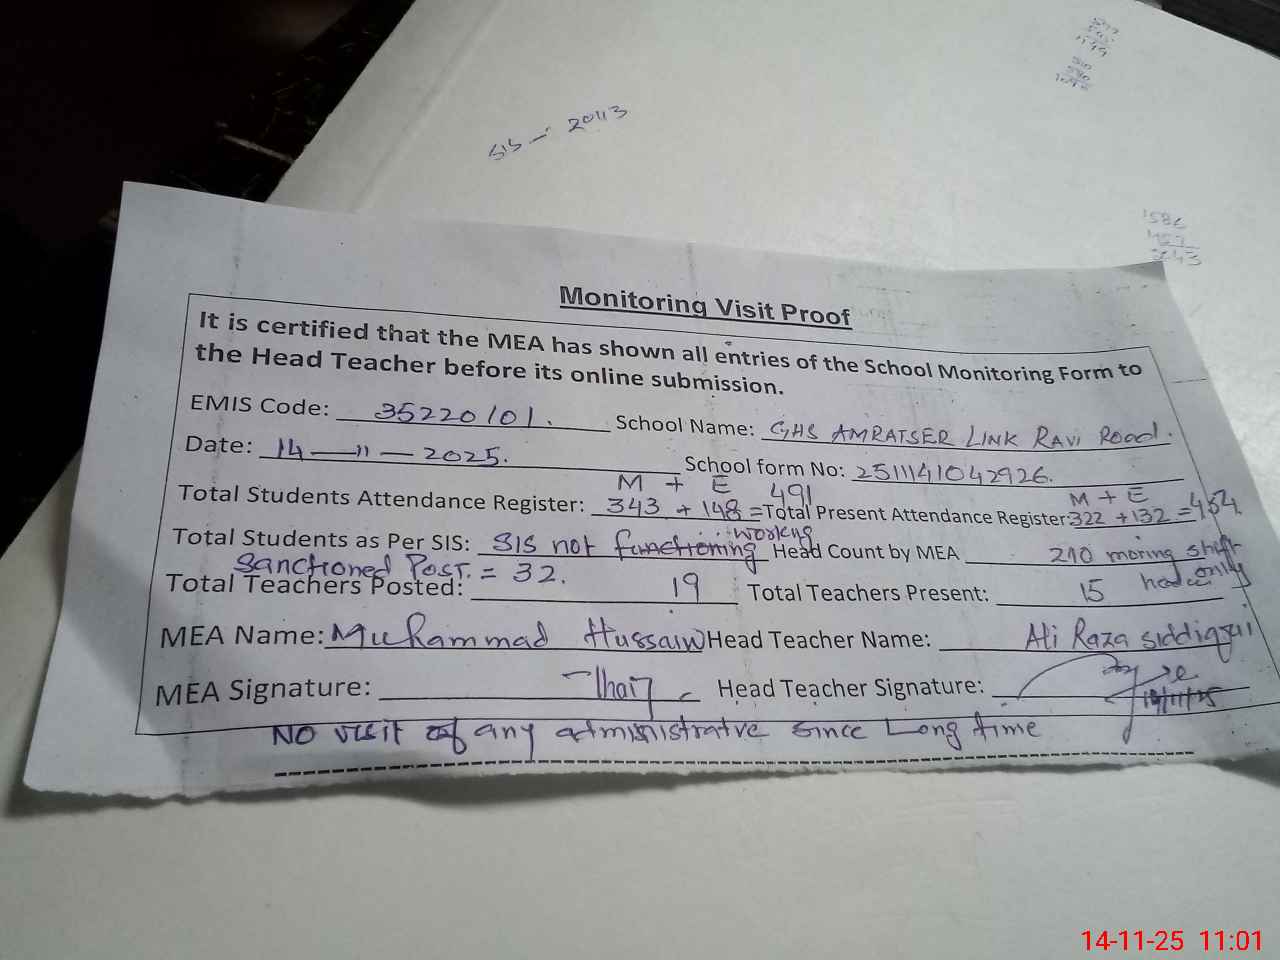 SIS — 2043
1586
457
2043
Monitoring Visit Proof
It is certified that the MEA has shown all entries of the School Monitoring Form to
the Head Teacher before its online submission.
EMIS Code: 35220101. School Name: GHS AMRATSER LINK RAVI ROAD.
Date: 14 — 11 — 2025. School form No: 2511141042926.
M + E 491 M + E
Total Students Attendance Register: 343 + 148 = Total Present Attendance Register: 322 + 132 = 454.
working
Total Students as Per SIS: SIS not functioning Head Count by MEA 210 morning shift
Sanctioned Post. = 32. only
Total Teachers Posted: 19 Total Teachers Present: 15
MEA Name: Muhammad Hussain Head Teacher Name: Ali Raza siddiqui
MEA Signature: Head Teacher Signature:
14/11/25
NO visit of any administrative since Long time
14-11-25 11:01